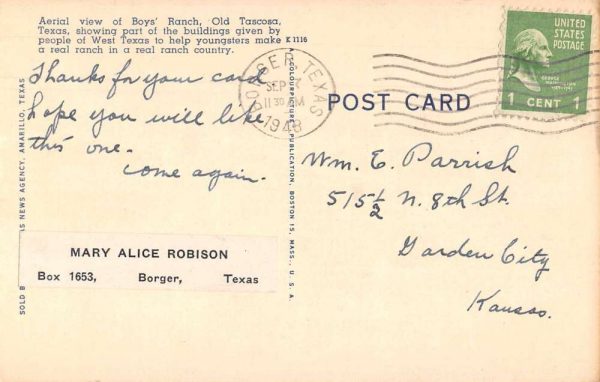 Aerial view of Boys' Ranch, Old Tascosa,
Texas, showing part of the buildings given by
people of West Texas to help youngsters make K 1116
a real ranch in a real ranch country.
Thanks for your card
hope you will like
this one.
come again.
MARY ALICE ROBISON
Box 1653, Borger, Texas
S NEWS AGENCY, AMARILLO, TEXAS
SOLD B
A "COLOURPICTURE" PUBLICATION, BOSTON 15, MASS., U. S. A.
BORGER, TEXAS
SEP
11 30 AM
1948
POST CARD
UNITED
STATES
POSTAGE
GEORGE
WASHINGTON
1 CENT 1
Wm. E. Parrish
515½ N. 8th St.
Garden City
Kansas.